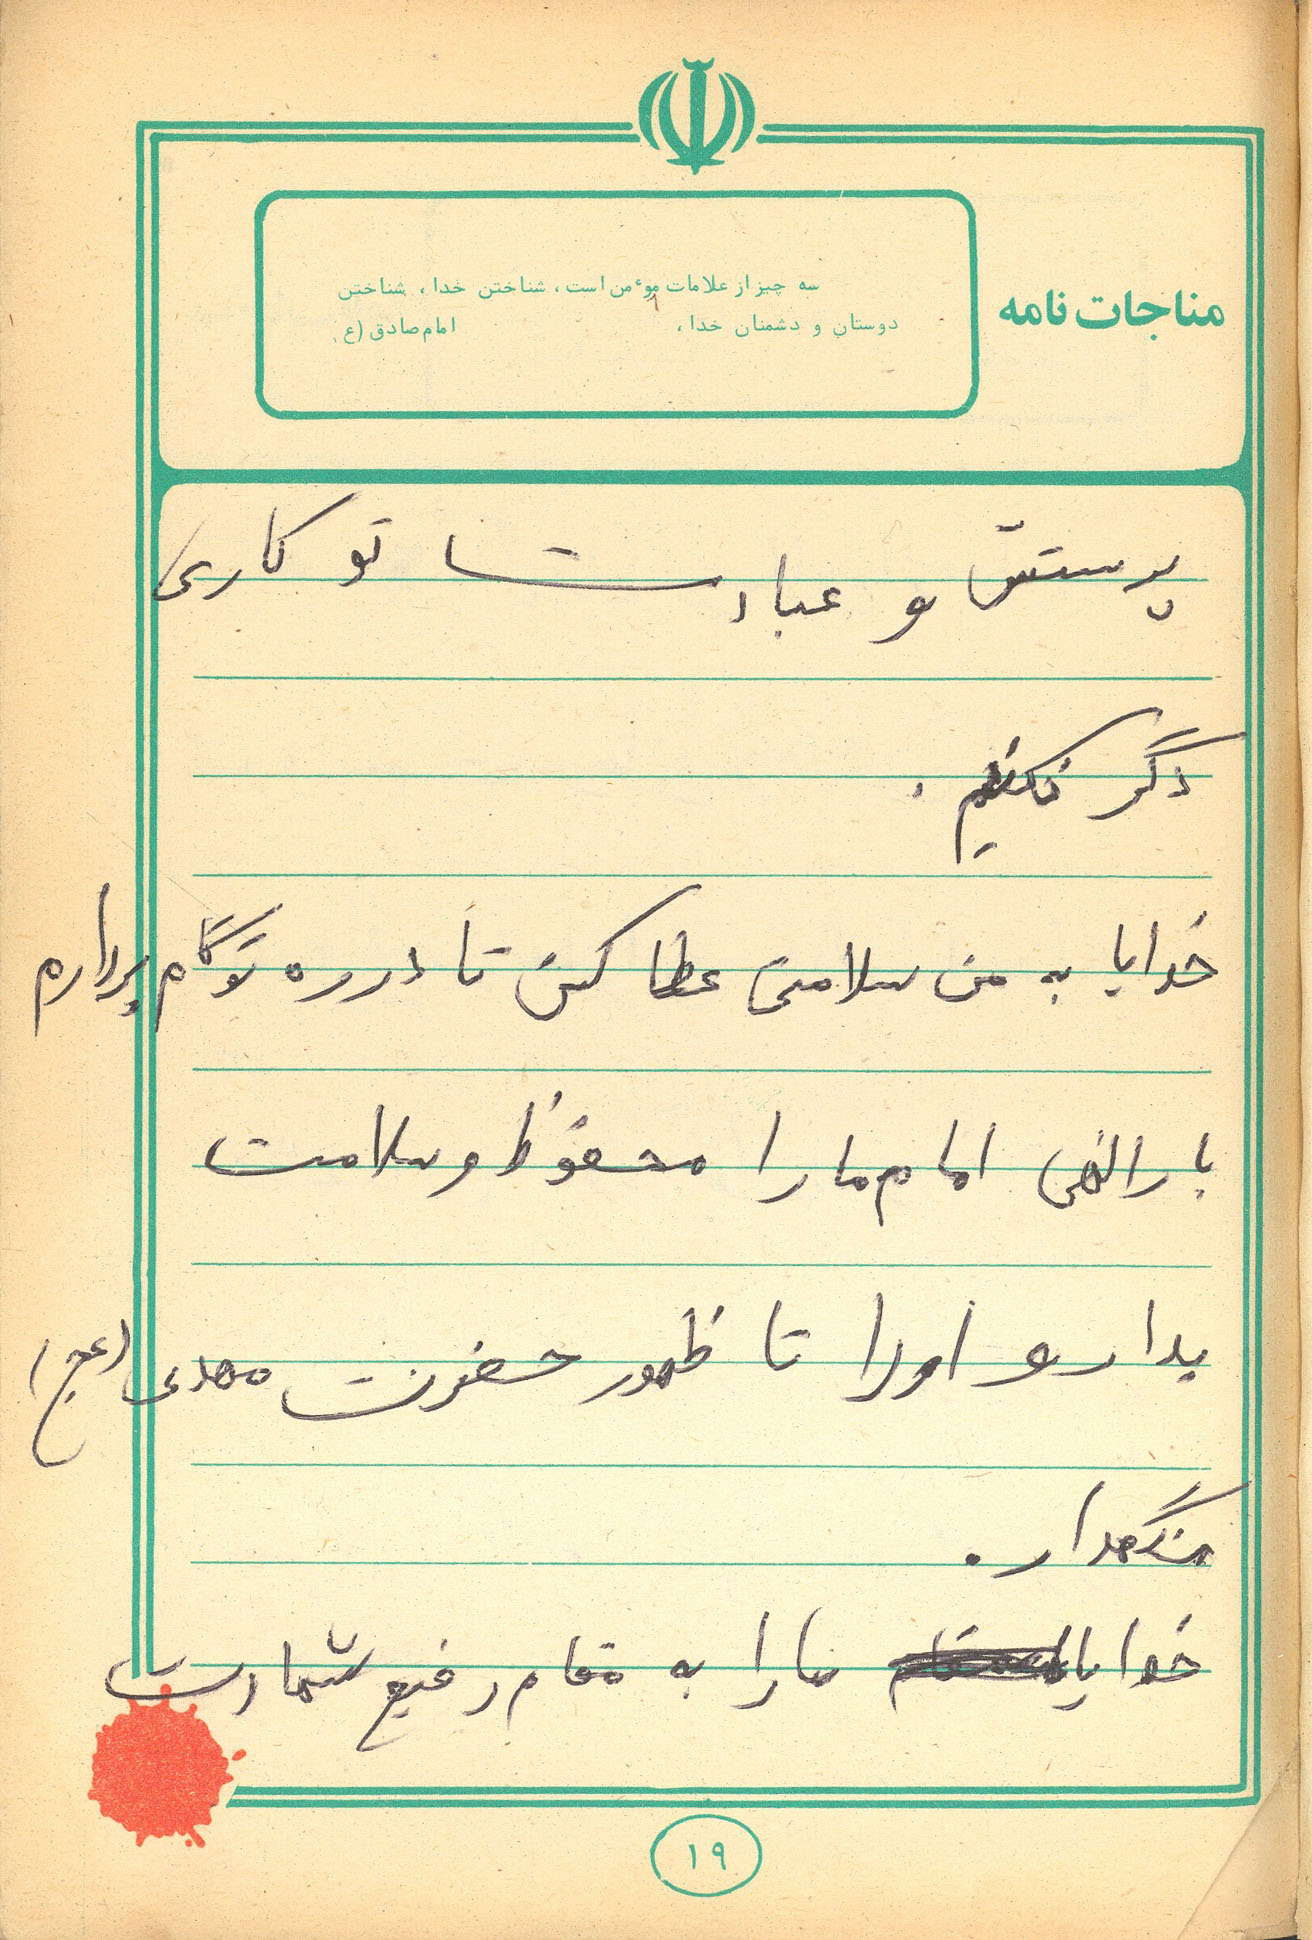 مناجات نامه
سه چیز از علامات موءمن است، شناختن خدا، شناختن
دوستان و دشمنان خدا، امام صادق (ع)
پرستش و عبادت تو کاری
دگر نکنیم .
خدایا به من سلامتی عطا کن تا در ره تو گام بردارم
بارالهی امام ما را محفوظ و سلامت
بدار و او را تا ظهور حضرت مهدی (عج)
نگهدار .
خدایا ما را به مقام رفیع شهادت
۱۹